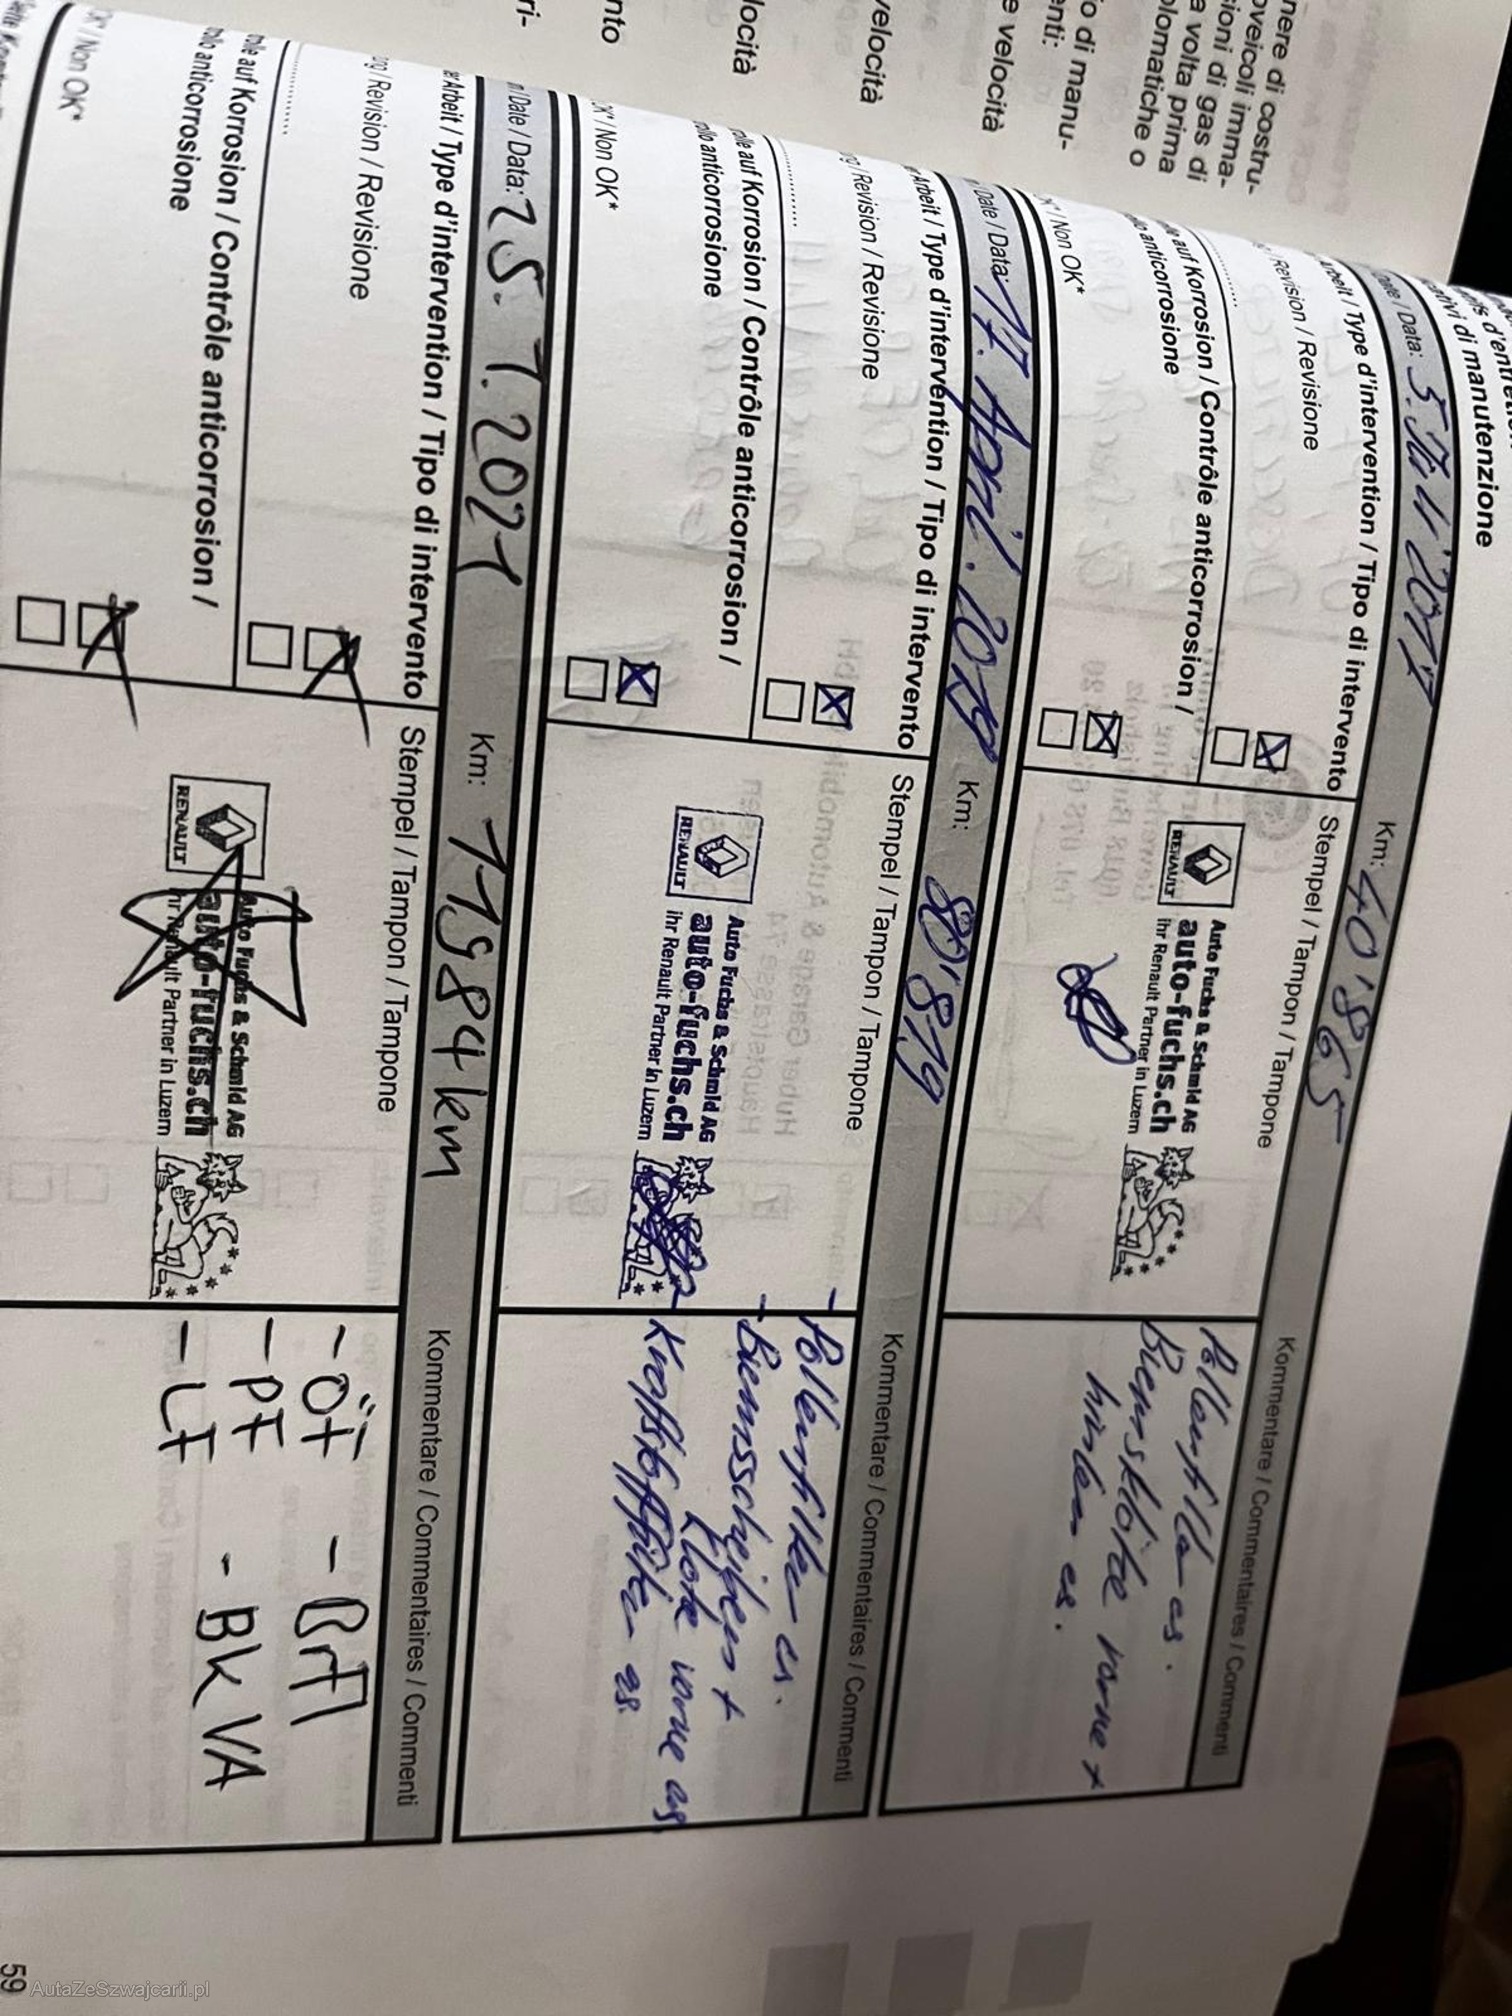 nere di costru-
oveicoli imma-
sioni di gas di
a volta prima
olomatiche o
o di manu-
enti:
e velocità
velocità
locità
nto
ri-
d'entretien
di manutenzione
Date / Data: 5. Juli 2017 Km: 40'865
Arbeit / Type d'intervention / Tipo di intervento
Stempel / Tampon / Tampone
Kommentare / Commentaires / Commenti
Revision / Revisione
auf Korrosion / Contrôle anticorrosion /
anticorrosione
OK* / Non OK*
RENAULT
Auto Fuchs & Schmid AG
auto-fuchs.ch
ihr Renault Partner in Luzern
Pollenfilter es.
Bremsklötze vorne +
hinten es.
Date / Data: 17. April. 2019 Km: 80'819
Arbeit / Type d'intervention / Tipo di intervento
Stempel / Tampon / Tampone
Kommentare / Commentaires / Commenti
Revision / Revisione
auf Korrosion / Contrôle anticorrosion /
anticorrosione
OK* / Non OK*
RENAULT
Auto Fuchs & Schmid AG
auto-fuchs.ch
ihr Renault Partner in Luzern
- Pollenfilter es.
- Bremsscheiben +
Klötze vorne es
- Kraftstofffilter es.
/ Date / Data: 25.1.2021 Km: 11984 km
Arbeit / Type d'intervention / Tipo di intervento
Stempel / Tampon / Tampone
Kommentare / Commentaires / Commenti
/ Revision / Revisione
auf Korrosion / Contrôle anticorrosion /
anticorrosione
OK* / Non OK*
RENAULT
Auto Fuchs & Schmid AG
auto-fuchs.ch
ihr Renault Partner in Luzern
- ÖF - BrFl
- PF - BK VA
- LF
59
AutaZeSzwajcarii.pl